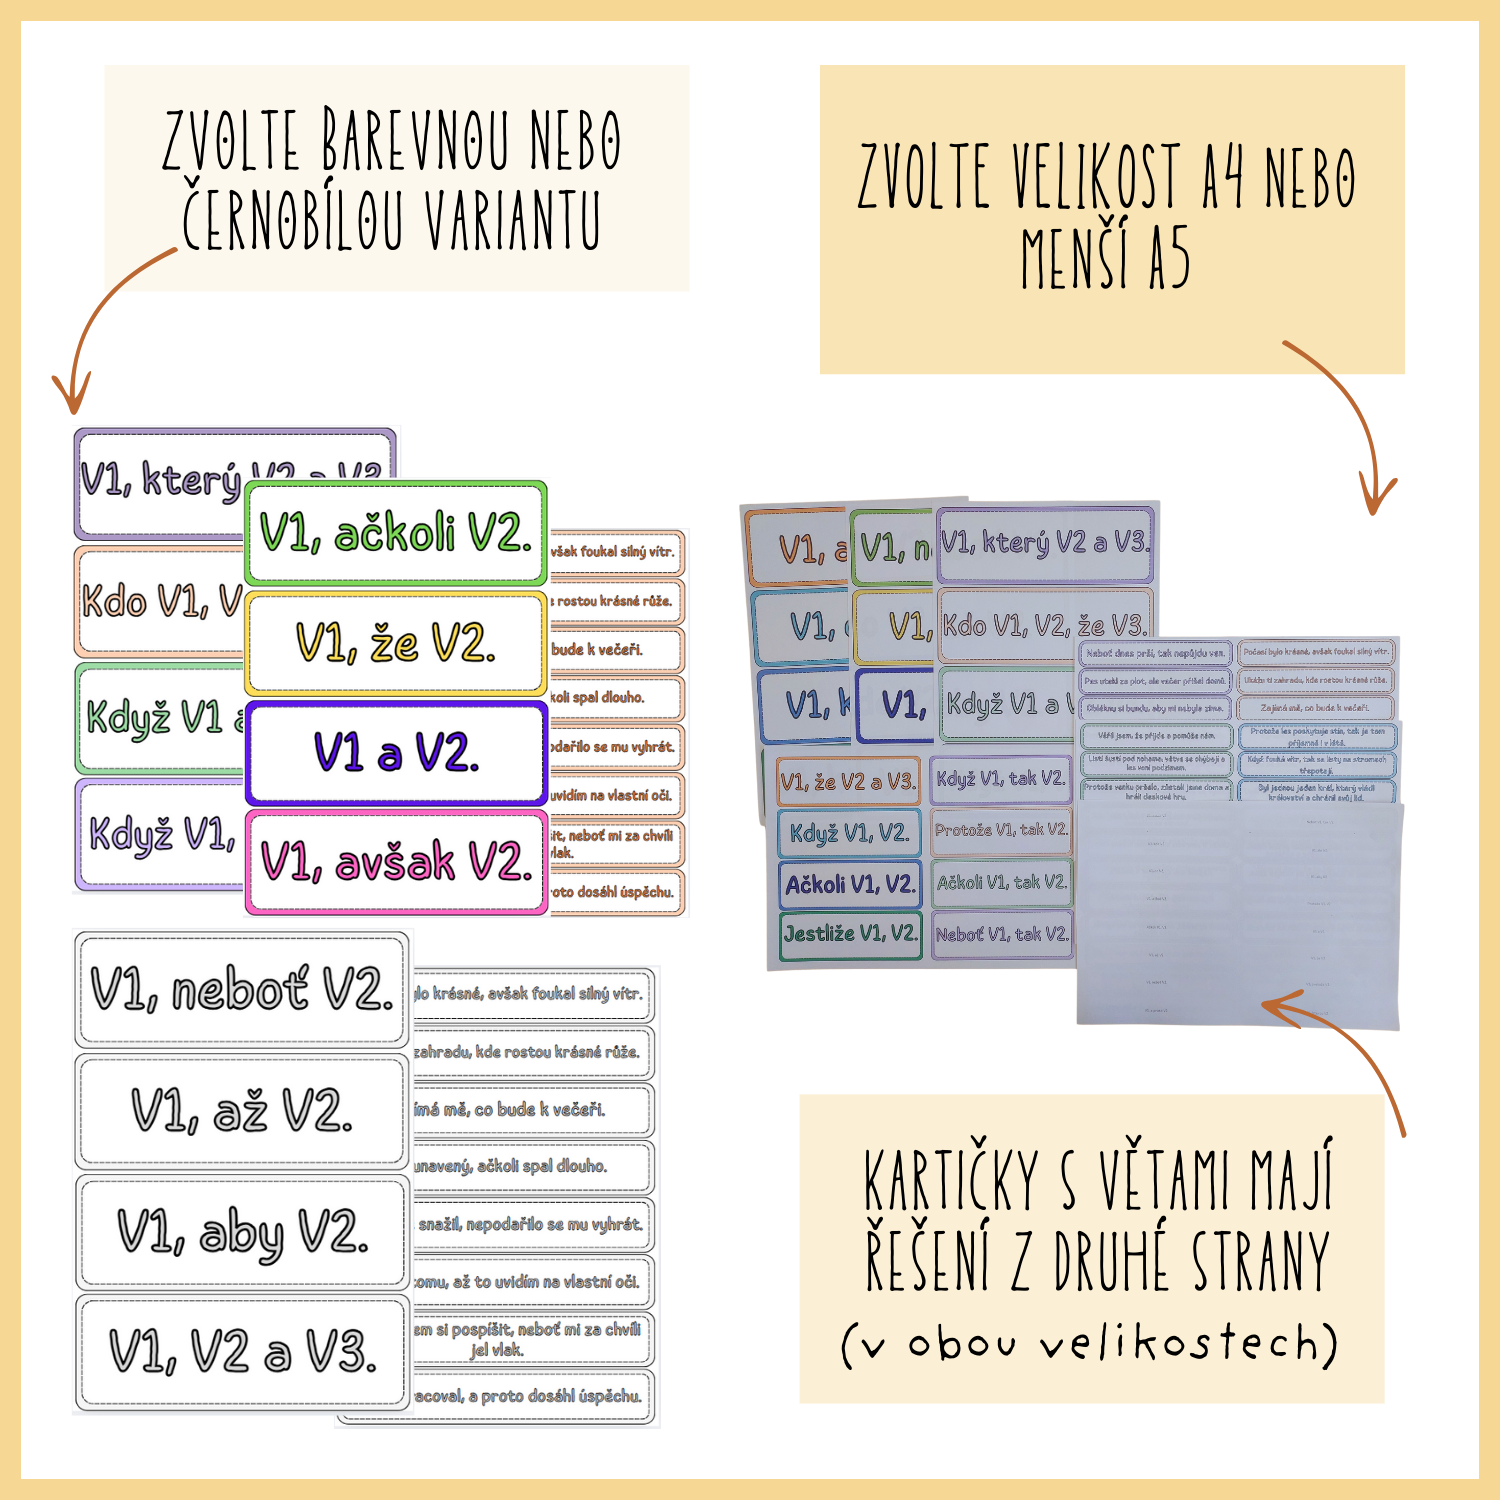 ZVOLTE BAREVNOU NEBO
ČERNOBÍLOU VARIANTU
ZVOLTE VELIKOST A4 NEBO
MENŠÍ A5
V1, který V2 a V3.
Kdo V1, V
Když V1 a
Když V1,
V1, ačkoli V2.
V1, že V2.
V1 a V2.
V1, avšak V2.
však foukal silný vítr.
rostou krásné růže.
bude k večeři.
koli spal dlouho.
podařilo se mu vyhrát.
uvidím na vlastní oči.
šit, neboť mi za chvíli
vlak.
proto dosáhl úspěchu.
V1, neboť V2.
V1, až V2.
V1, aby V2.
V1, V2 a V3.
ylo krásné, avšak foukal silný vítr.
zahradu, kde rostou krásné růže.
ímá mě, co bude k večeři.
unavený, ačkoli spal dlouho.
snažil, nepodařilo se mu vyhrát.
tomu, až to uvidím na vlastní oči.
em si pospíšit, neboť mi za chvíli
jel vlak.
acoval, a proto dosáhl úspěchu.
V1, a
V1,
V1, k
V1, n
V1,
V1,
V1, který V2 a V3.
Kdo V1, V2, že V3.
Když V1 a V
V1, že V2 a V3.
Když V1, V2.
Ačkoli V1, V2.
Jestliže V1, V2.
Když V1, tak V2.
Protože V1, tak V2.
Ačkoli V1, tak V2.
Neboť V1, tak V2.
Neboť dnes prší, tak nepůjdu ven.
Pes utekl za plot, ale večer přišel domů.
Obléknu si bundu, aby mi nebyla zima.
Věřil jsem, že přijde a pomůže nám.
Listí šustí pod nohama, větve se ohýbají a
les voní podzimem.
Protože venku pršelo, zůstali jsme doma a
hráli deskové hry.
Počasí bylo krásné, avšak foukal silný vítr.
Ukážu ti zahradu, kde rostou krásné růže.
Zajímá mě, co bude k večeři.
Protože les poskytuje stín, tak je tam
příjemně i v létě.
Když fouká vítr, tak se listy na stromech
třepotají.
Byl jednou jeden král, který vládl
království a chránil svůj lid.
KARTIČKY S VĚTAMI MAJÍ
ŘEŠENÍ Z DRUHÉ STRANY
(v obou velikostech)